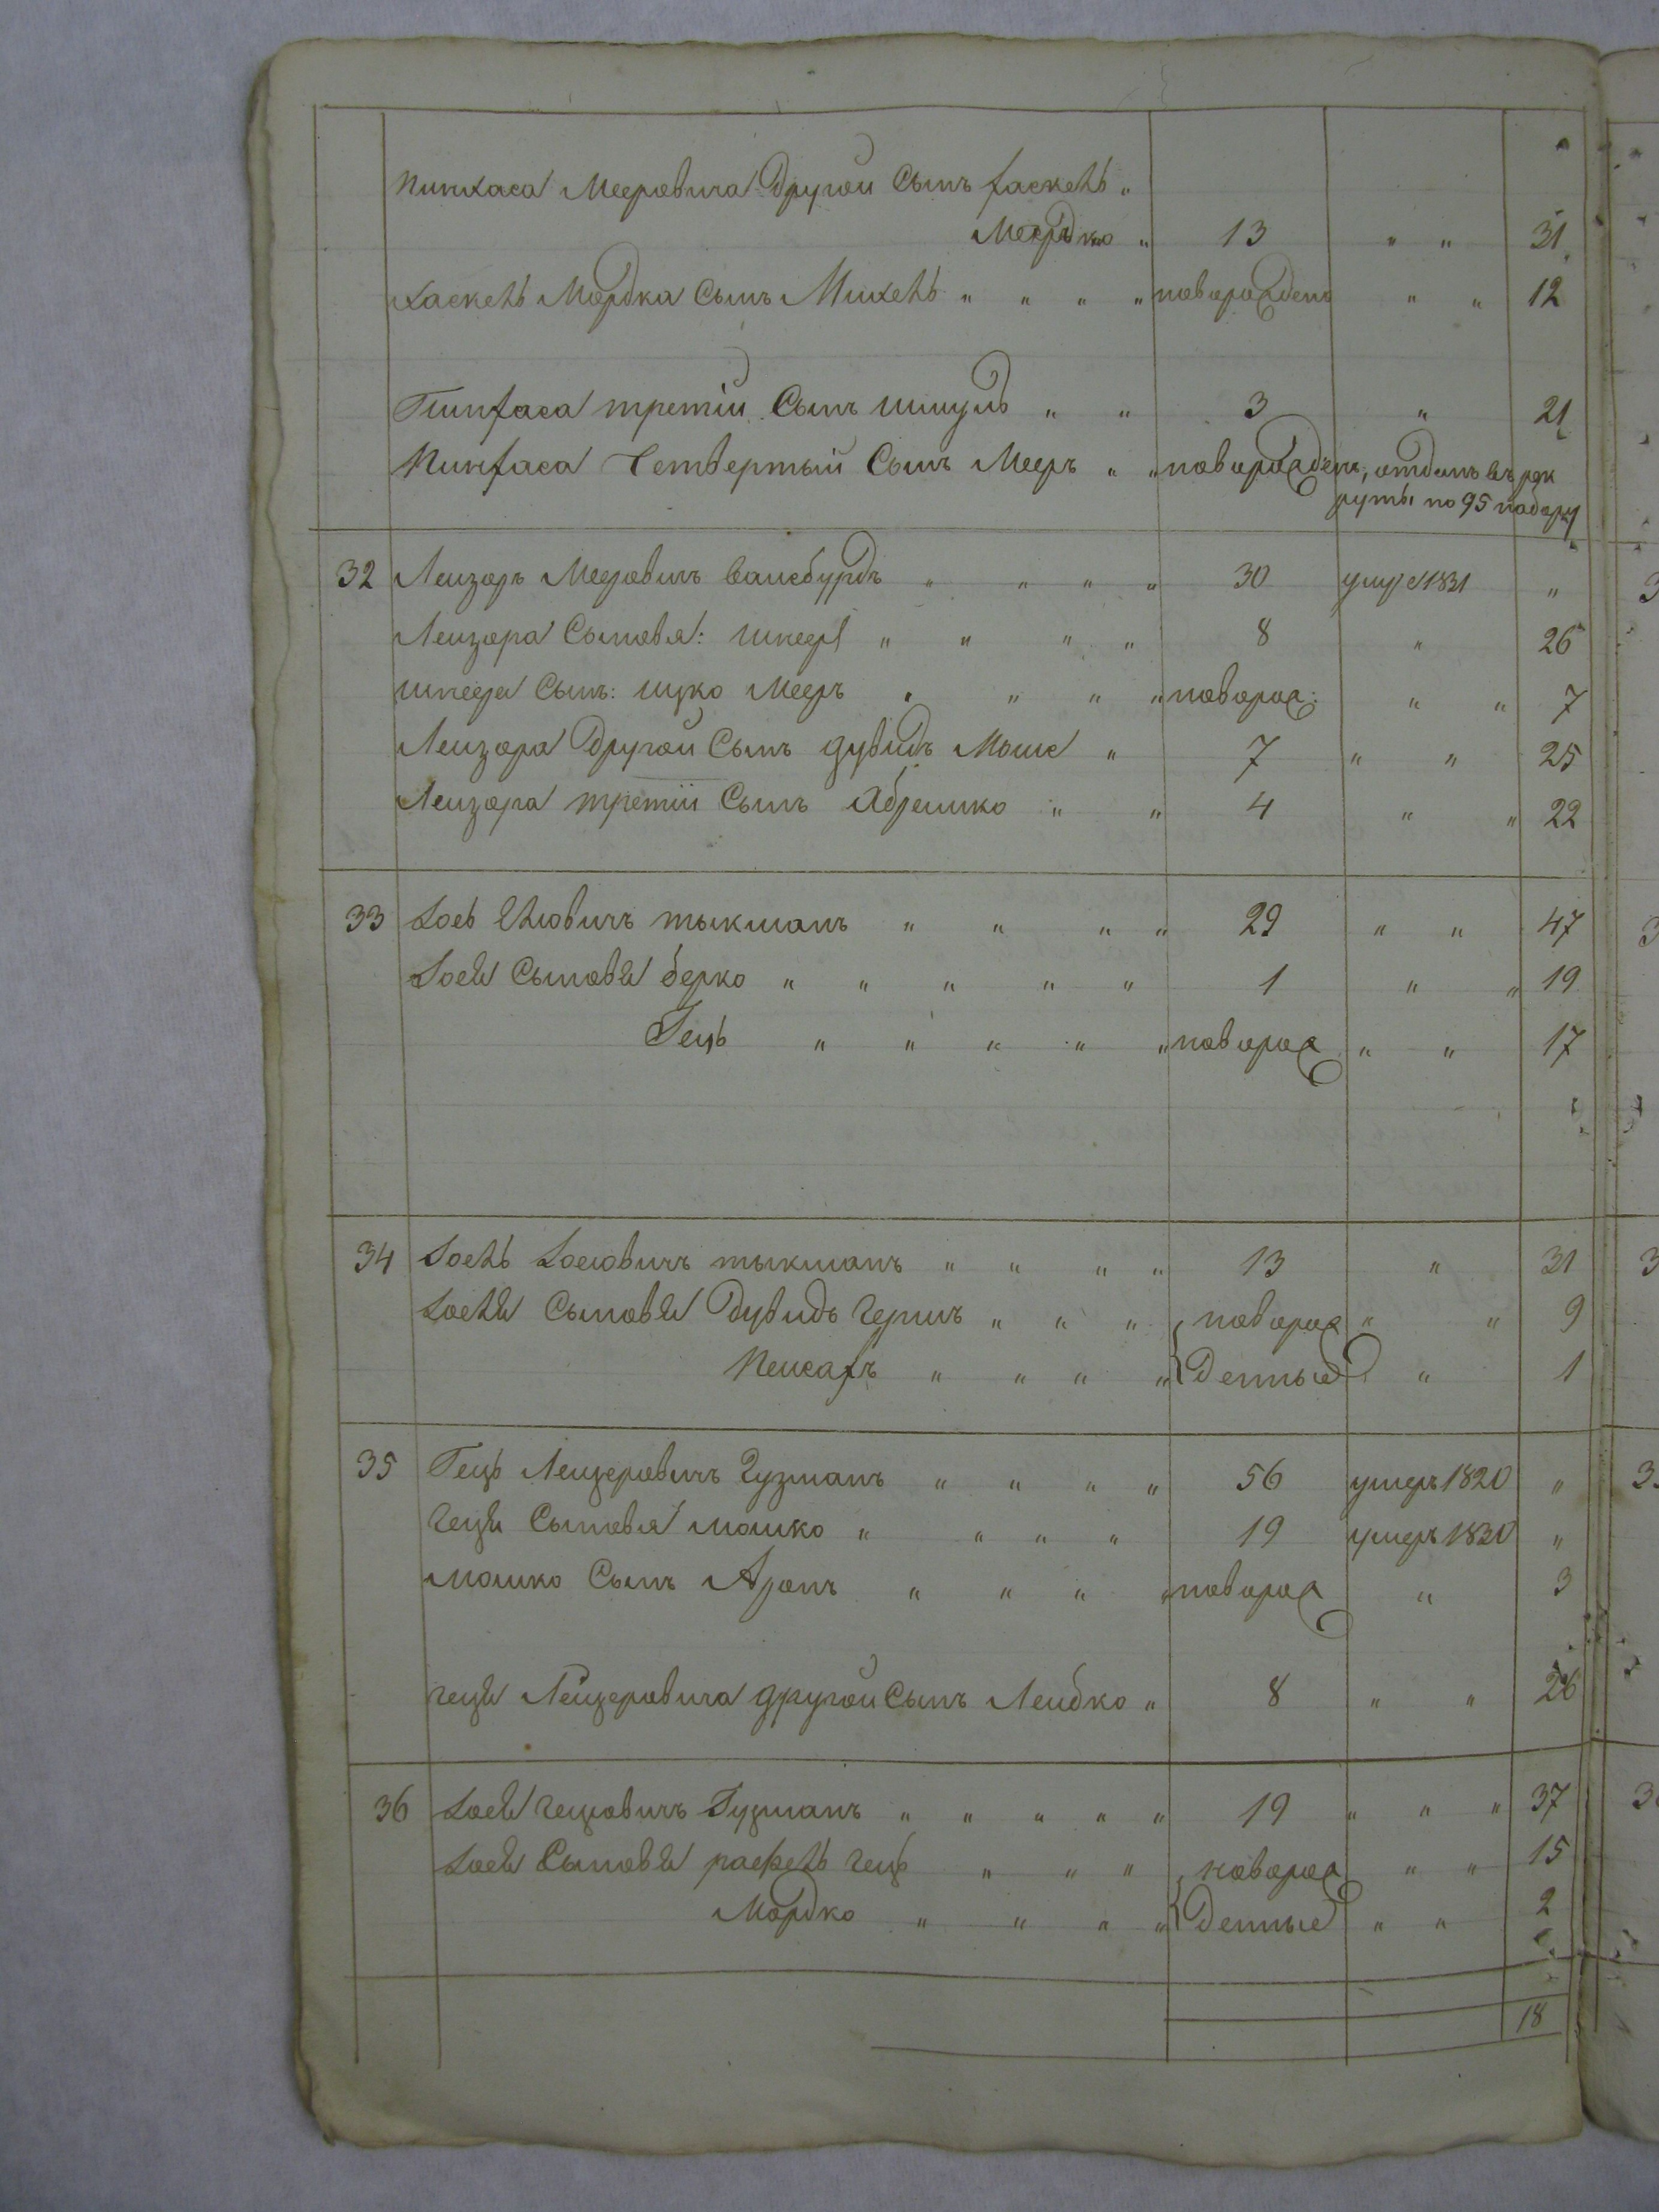 Пинхаса Мееровича другой Сынъ Хаскель "
Мордко " 13 " " 31
Хаскель Мордка Сынъ Михель " " " " новорожденъ " " 12
Пинхаса третiй Сынъ Шмуль " " 3 " 21
Пинхаса Четвертый Сынъ Мееръ " " новорожденъ, отданъ въ рек
руты по 95 набору
32 Лейзоръ Меровичъ Вайсбурдъ " " " " 30 уме 1831 "
Лейзора Сыновья: Шнеер " " " " 8 " 26
Шнеера Сынъ: Ицко Мееръ " " " " новорож: " " 7
Лейзора другой Сынъ Дувидъ Моше " 7 " " 25
Лейзора третiй Сынъ Абрамко " " 4 " " 22
33 Іось Елювичъ Тыкманъ " " " " 29 " " 47
Сыновья Берко " " " " " 1 " " 19
Гець " " " " " новорож " " 17
34 Іоель Тыкманъ " " " " 13 " 31
Іоеля Сыновья Дувидъ Гершъ " " " новорож " " 9
Пейсахъ " " " " денные " 1
35 Гець Лейзеровичъ Гузманъ " " " " 56 умеръ 1820 "
Геця Сыновья Мошко " " " " 19 умеръ 1830 "
Мошко Сынъ Аронъ " " " " новорож " 3
Геця Лейзеровича другой Сынъ Лейбко " 8 " " 26
36 Гецовичъ Гузманъ " " " " " 19 " " " 37
Сыновья Рафель Гець " " " новорож " " 15
Мордко " " " " денные " " 2
18